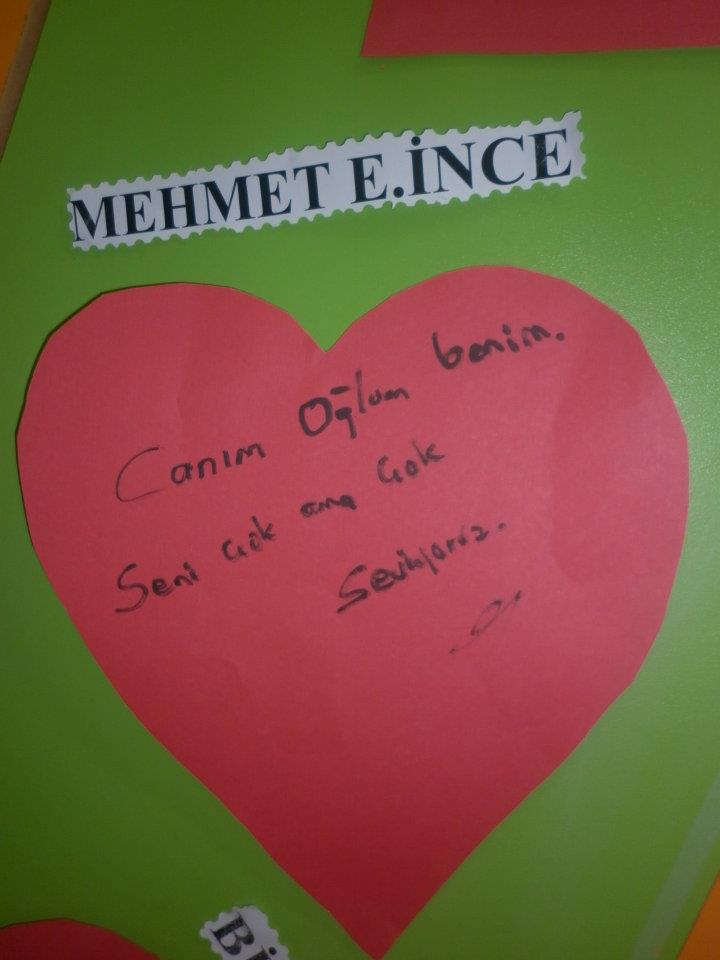 MEHMET E.İNCE
Canım Oğlum benim.
Seni çok ama çok
Seviyoruz.
Bİ